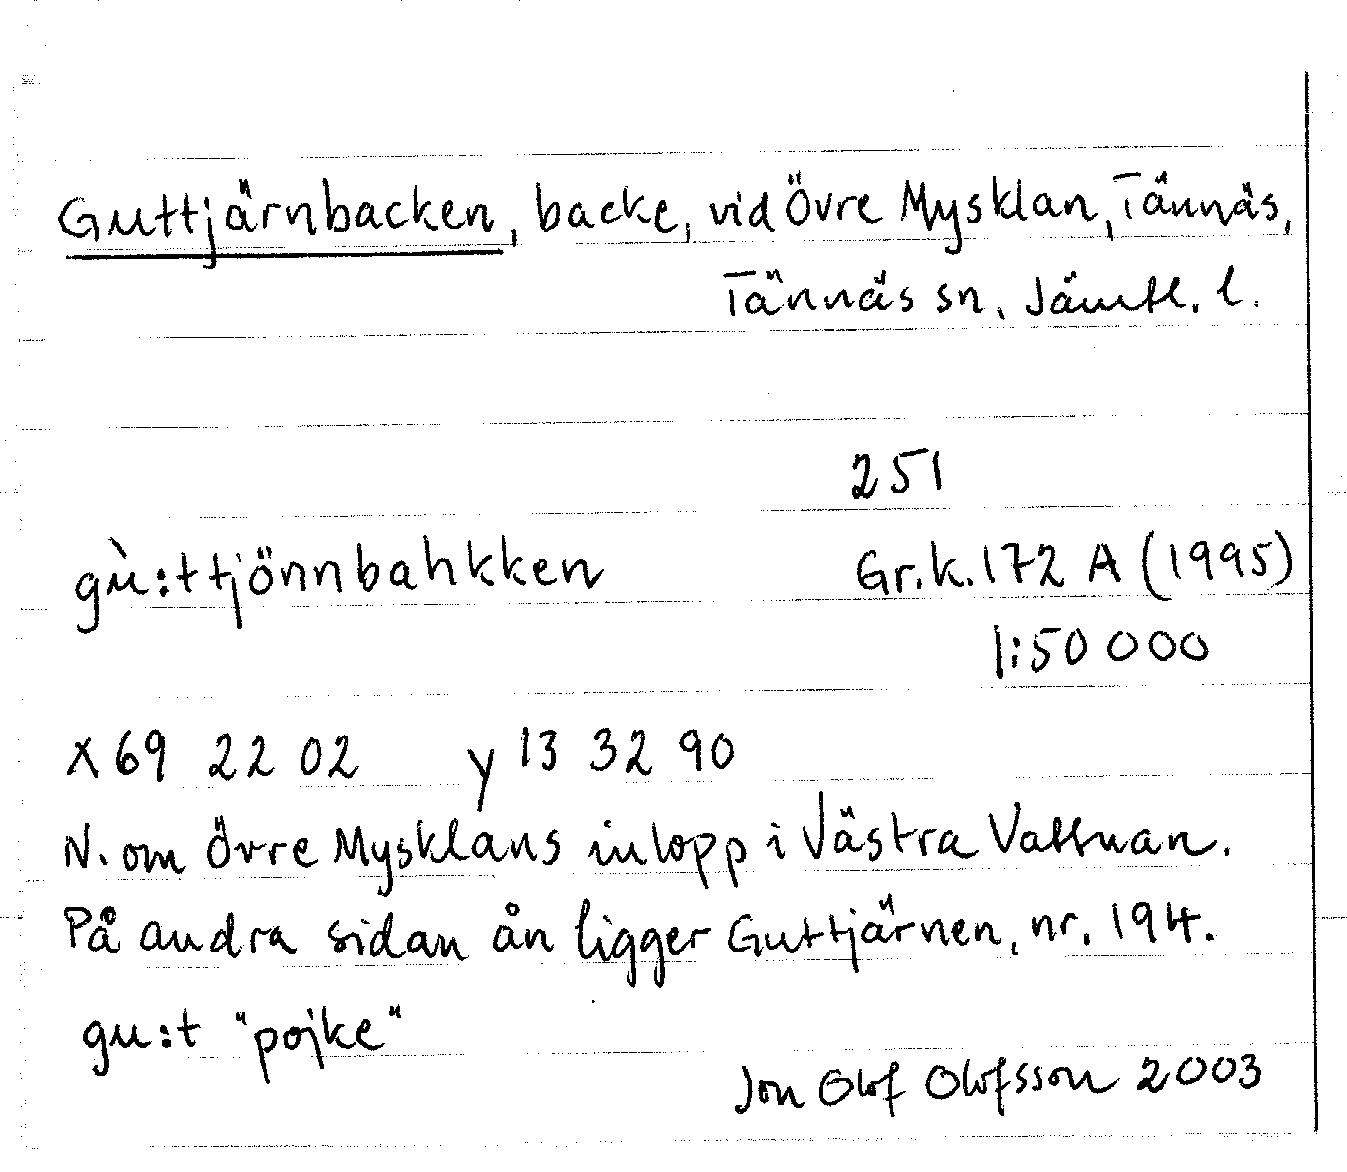 Guttjärnbacken, backe, vid Övre Mysklan, Tännäs,
Tännäs sn. Jämtl. l.
251
gù:ttjönnbahkken Gr.k. 172 A (1995)
1:50 000
x 69 22 02 y 13 32 90
N. om Övre Mysklans inlopp i Västra Vattnan.
På andra sidan ån ligger Guttjärnen, nr. 194.
gu:t "pojke"
Jon Olof Olofsson 2003